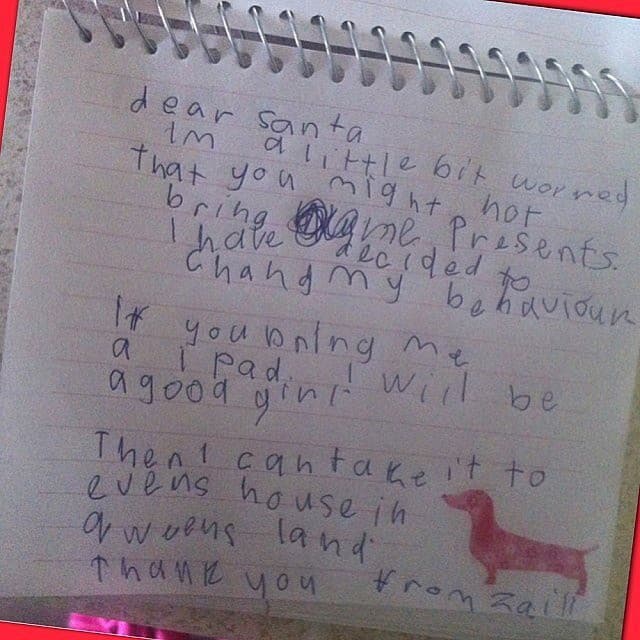 dear santa
Im a little bit worried
that you might not
bring me presents.
I have decided to
chand my behaviour
If you bring me
a i pad. I will be
a good girl
Then I can take it to
evens house in
qweens land.
thank you from zaili